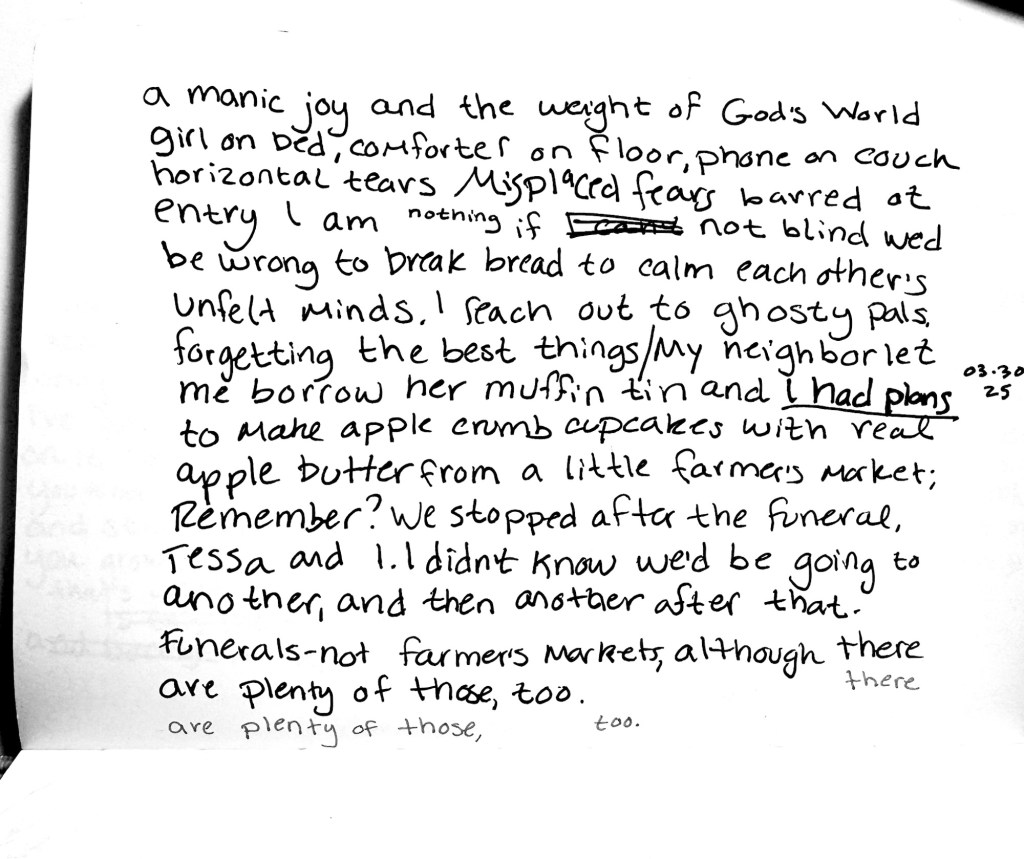 a manic joy and the weight of God's World
girl on bed, comforter on floor, phone on couch
horizontal tears Misplaced fears barred at
entry I am nothing if not blind wed
be wrong to break bread to calm each other's
unfelt minds. I reach out to ghosty pals,
forgetting the best things/My neighbor let
me borrow her muffin tin and I had plans
03.30
25
to make apple crumb cupcakes with real
apple butter from a little farmer's market;
Remember? We stopped after the funeral,
Tessa and I. I didn't know we'd be going to
another, and then another after that.
Funerals-not farmer's markets, although there
are plenty of those, too.
there
are plenty of those, too.